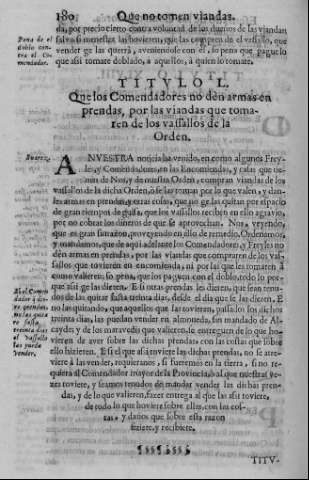 180 Que no tomen viandas.
da, por precio cierto contra voluntad de los dueños de las viandan
salvo si menester las hovieren, que las compren de el vassallo, que
vender ge las querrà, aveniendose con el, so pena que pague lo
que assi tomare doblado, à aquellos, à quien lo tomate.
Pena de el
doblo con-
tra el Co-
mendador.
TITVLO L.
Que los Comendadores no dèn armas en
prendas, por las viandas que toma-
ren de los vassallos de la
Orden.
Suarez.
A NVESTRA noticia ha venido, en como algunos Frey-
les, y Comendadores, en las Encomiendas, y casas que tie-
nen de Nos, y de nuestra Orden, compran viandas de los
vassallos de la dicha Orden, ò se las toman por lo que valen, y dan-
les armas en prendas, y otras cosas, que no ge las quitan por espacio
de gran tiempo de guisa, que los vassallos reciben en ello agravio,
por no cobrar los dineros de que se aprovechan. Nos, veyendo,
que es gran sinrazon, proveyendo en ello de remedio, Ordenamos,
y mandamos, que de aqui adelante los Comendadores, y Freyles no
dèn armas en prendas, por las viandas que compraren de los vas-
sallos que tovieren en encomienda, ni por las que les tomaren à
como valieren, so pena, que los paguen con el doblo, todo lo por-
que assi ge las dieren. E si otras prendas les dieren, que sean tenu-
dos de las quitar fasta treinta dias, desde el dia que se las dieren. E
no las quitando, que aquellos que las tovieren, passados los dichos
treinta dias, las puedan vender en almoneda, con mandado de Al-
cayde, y de los maravedis que valieren, se entreguen de lo que ho-
vieren de aver sobre las dichas prendas, con las costas que sobre
ello hizieren. E si el que assi toviere las dichas prendas, no se atre-
viere à las vender, requieranos, si fueremos en la tierra, si no re-
quiera al Comendador mayor de la Provincia, ò al que nuestras ve-
zes toviere, y seamos tenudos de mandar vender las dichas pren-
das, y de lo que valieren, fazer entrega al que las assi toviere,
de todo lo que hoviere sobre ellas, con las cos-
tas, y daños que sobre esta razon
fiziere, y recibiere.
dador à de-
do las quite
fasta
treinta dias
el vassallo
las pueda
vender.
TITV-